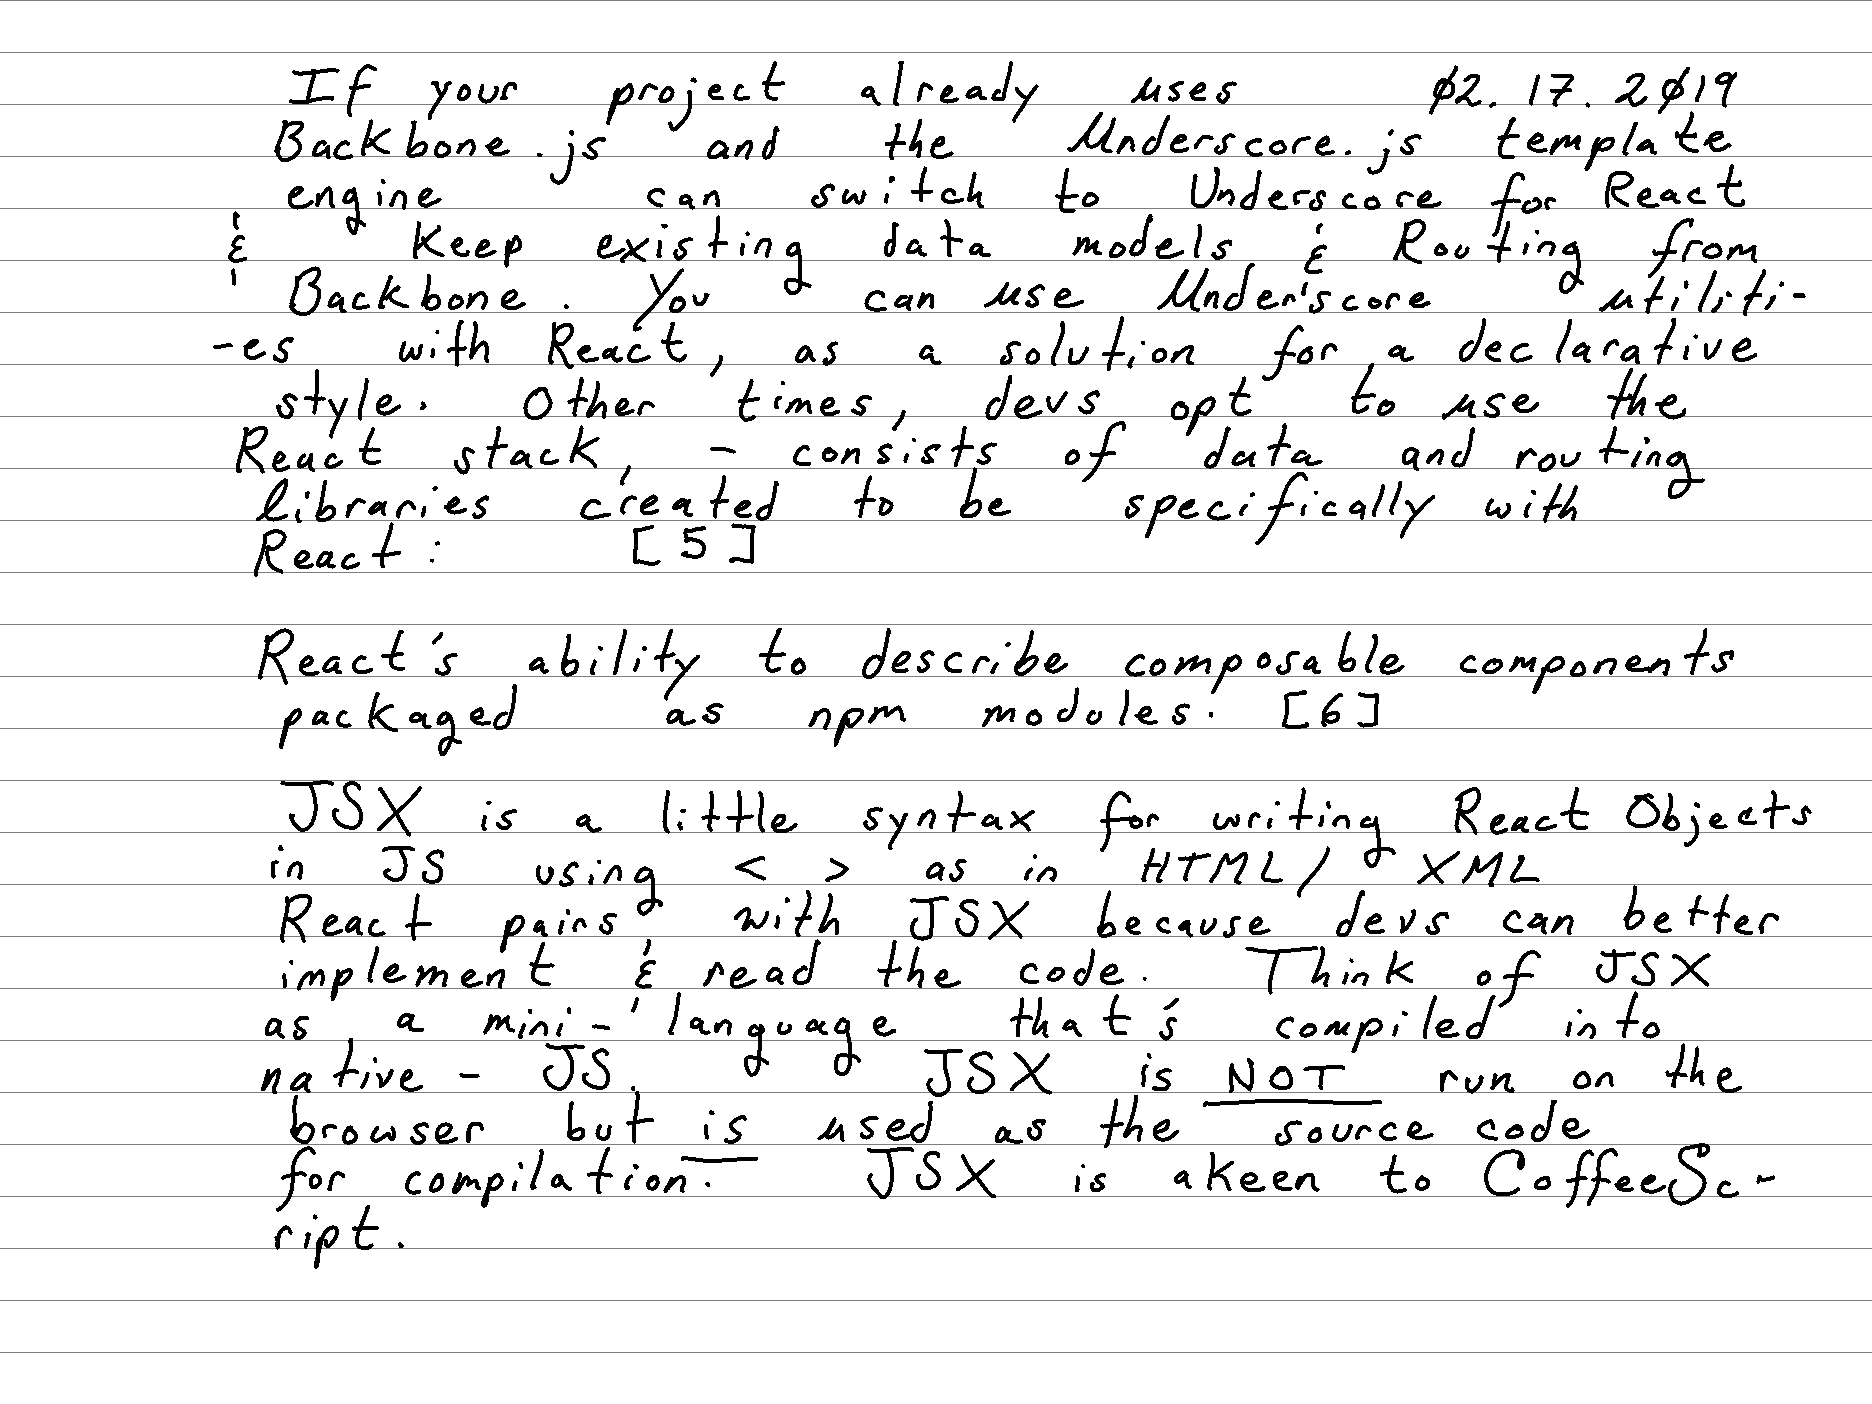 If your project already uses 02.17.2019
Backbone.js and the Underscore.js template
engine can switch to Underscore for React
& Keep existing data models & Routing from
Backbone. You can use Underscore utiliti-
-es with React, as a solution for a declarative
style. Other times, devs opt to use the
React stack, - consists of data and routing
libraries created to be specifically with
React: [5]
React's ability to describe composable components
packaged as npm modules. [6]
JSX is a little syntax for writing React Objects
in JS using < > as in HTML/ XML
React pairs with JSX because devs can better
implement & read the code. Think of JSX
as a mini-language that's compiled into
native - JS. JSX is NOT run on the
browser but is used as the source code
for compilation. JSX is akeen to CoffeeSc-
ript.